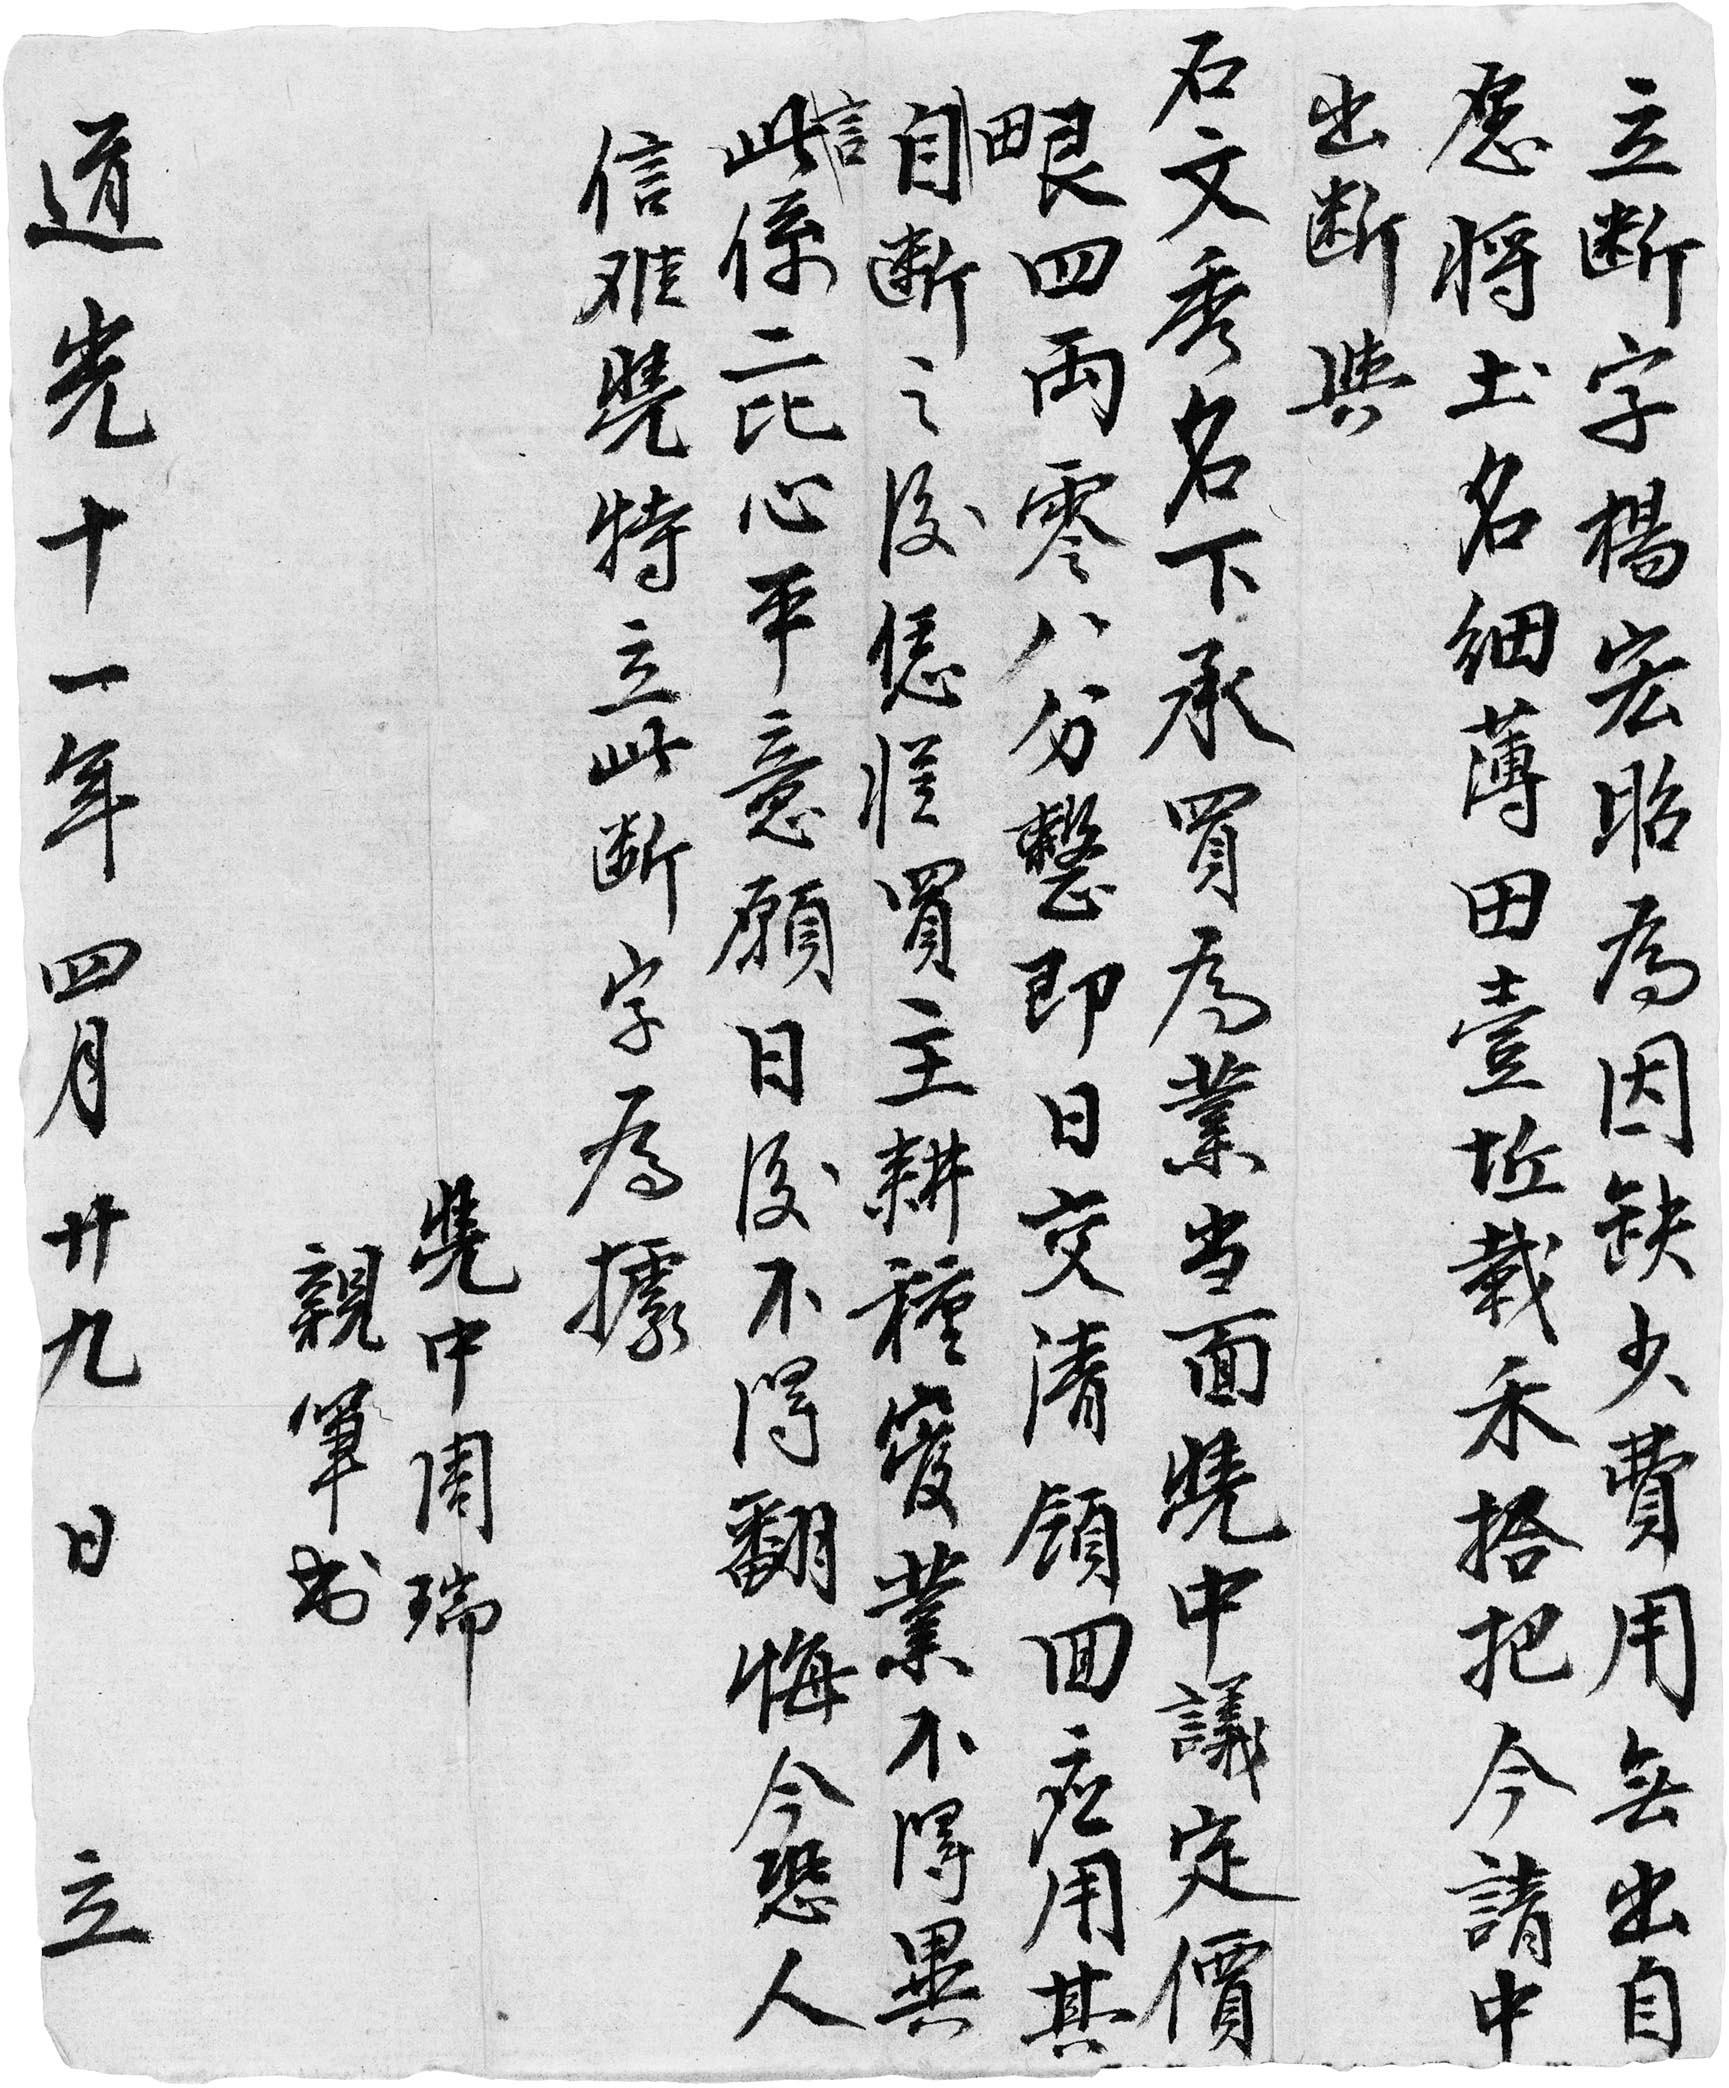 立断字楊宏昭為因缺少費用無出自
愿將土名細薄田壹坵載禾拾把今請中
出断與
石文秀名下承買為業当面凴中議定價
艮四両零八分整即日交清領回应用其
田自断之後恁從買主耕種管業不得異
言此係二比心平意願日後不得翻悔今恐人
信难凴特立此断字為據
凴中周瑞
親筆书
道光十一年四月廿九日 立